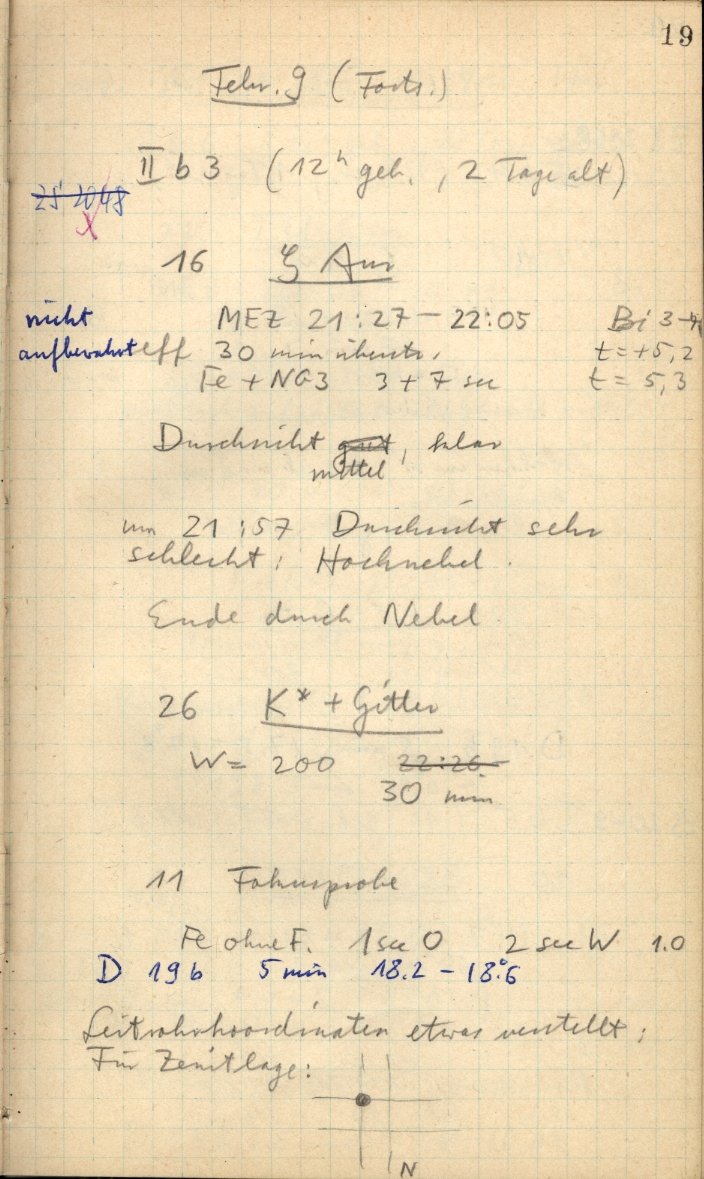 19
Febr. 9 (Forts.)
II b 3 (12h geh., 2 Tage alt)
25 2048
X
16 ζ Aur
nicht MEZ 21:27 – 22:05 Bi 3-4
aufbewahrt eff 30 min überstr. t = +5,2
Fe + NG3 3 + 7 sec t = 5,3
Durchsicht gut, klar
mittel
um 21:57 Durchsicht sehr
schlecht; Hochnebel.
Ende durch Nebel
26 K* + Gitter
W = 200 22:26
30 min
11 Fokusprobe
Fe ohne F. 1 sec O 2 sec W 1.0
D 19b 5 min 18.2 – 18.°6
Leitrohrkoordinaten etwas verstellt;
Für Zenitlage:
N